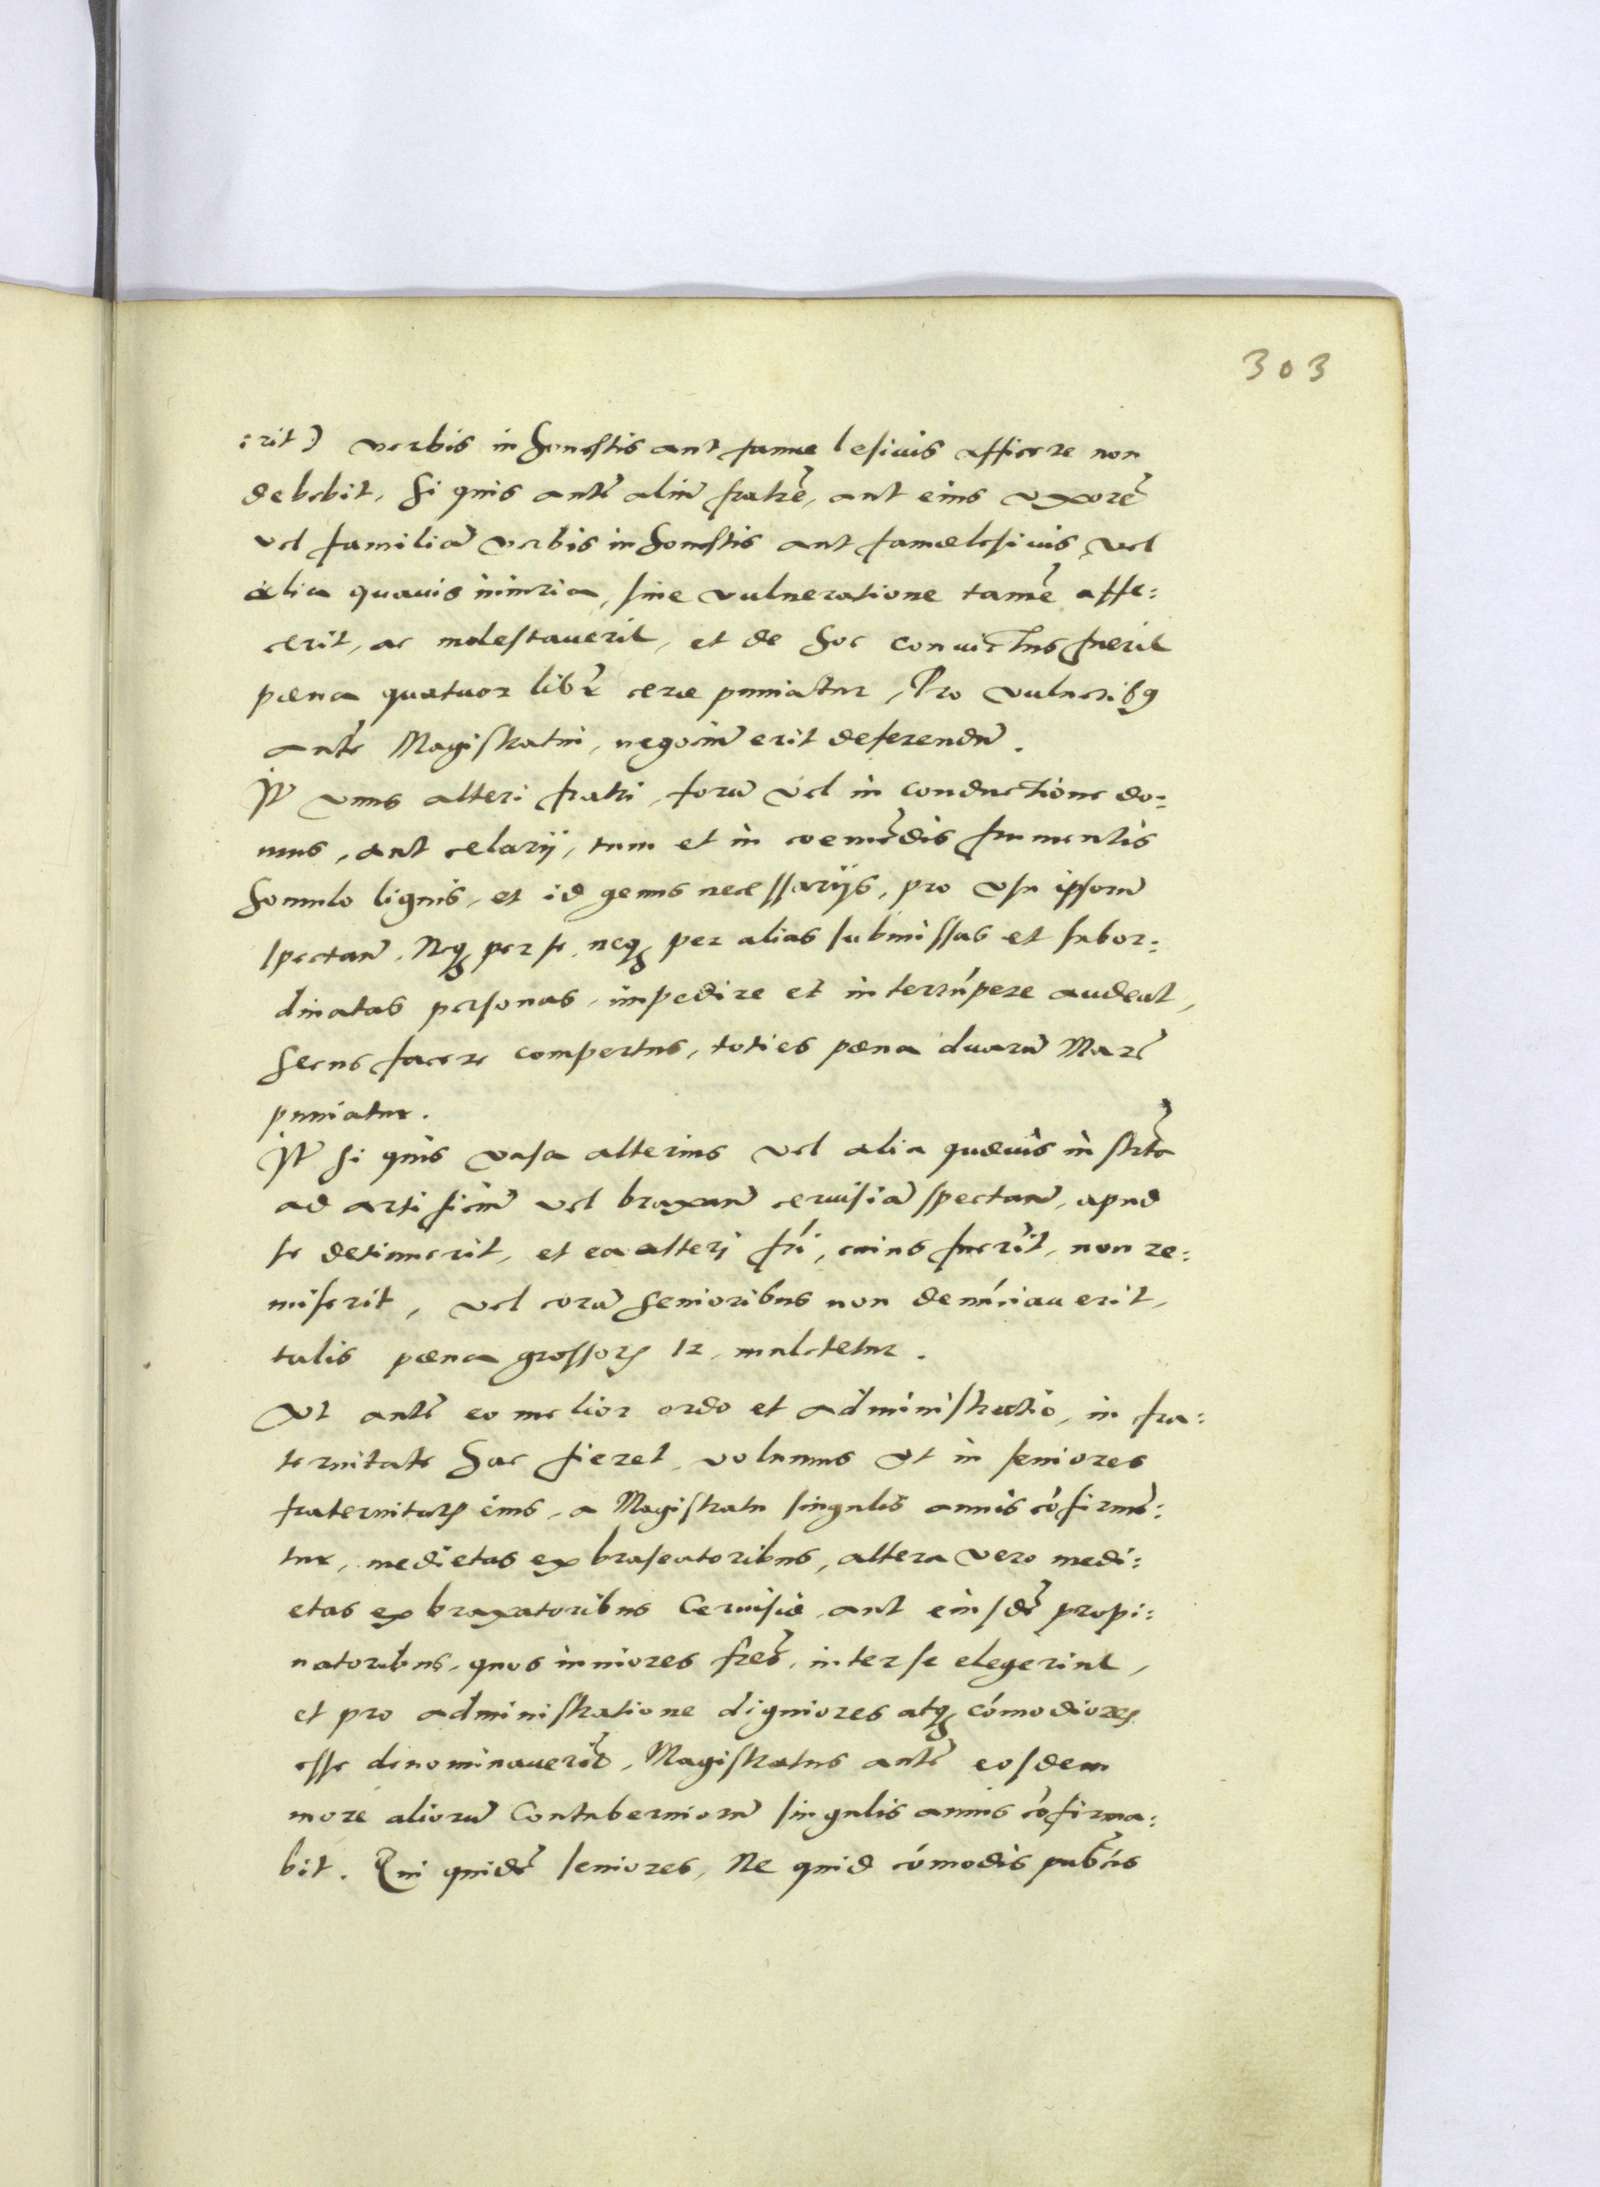 303
:rit) verbis inhonestis aut famae lesiuis afficere non
debebit, Si quis autē aliū fratrē, aut eius vxorē
vel familiā verbis inhonestis aut famaelesiuis, vel
alia quauis iniuria, sine vulneratione tamē affe:
cerit, ac molestauerit, et de hoc conuictus fuerit
pœna quatuor libr cerae puniatur, Pro vulneribꝫ
autē Magistratui, negociū erit deferendū.
Itē vnus alteri fratri, forū vel in conductione do:
mus, aut celarij, tum et in coemēdis frumentis
homulo lignis, et id genus necessarijs, pro vsu ipsorū
spectan̄, Neqꝫ per se, neqꝫ per alias submissas et subor:
dinatas personas, impedire et interrūpere audeat,
Secus facere compertus, toties pœna duarū Marc̄
puniatur.
Itē si quis vasa alterius vel alia quaeuis instrta
ad artificiū vel braxan̄ ceruisiā spectan̄, apud
se detinuerit, et ea alteri fri, cuius fuerīt, non re:
miserit, vel corā senioribus non denūciauerit,
talis pœna grossorꝫ 12, mulctetur.
Vt autē eo melior ordo et administratio, in fra:
ternitate hac fieret, volumus vt in seniores
fraternitatꝫ eius, a Magistratu singulis annis cōfirmē:
tur, medietas ex braseatoribus, altera vero medi:
etas ex braxatoribus Ceruisiae, aut eiusdē propi:
natoribus, quos iuniores frēs, inter se elegerint,
et pro administratione digniores atqꝫ cōmodiores
esse denominauerīt, Magistratus autē eosdem
more aliorū Contuberniorū singulis annis cōfirma:
bit. Qui quidē seniores, Ne quid cōmodis pubcis